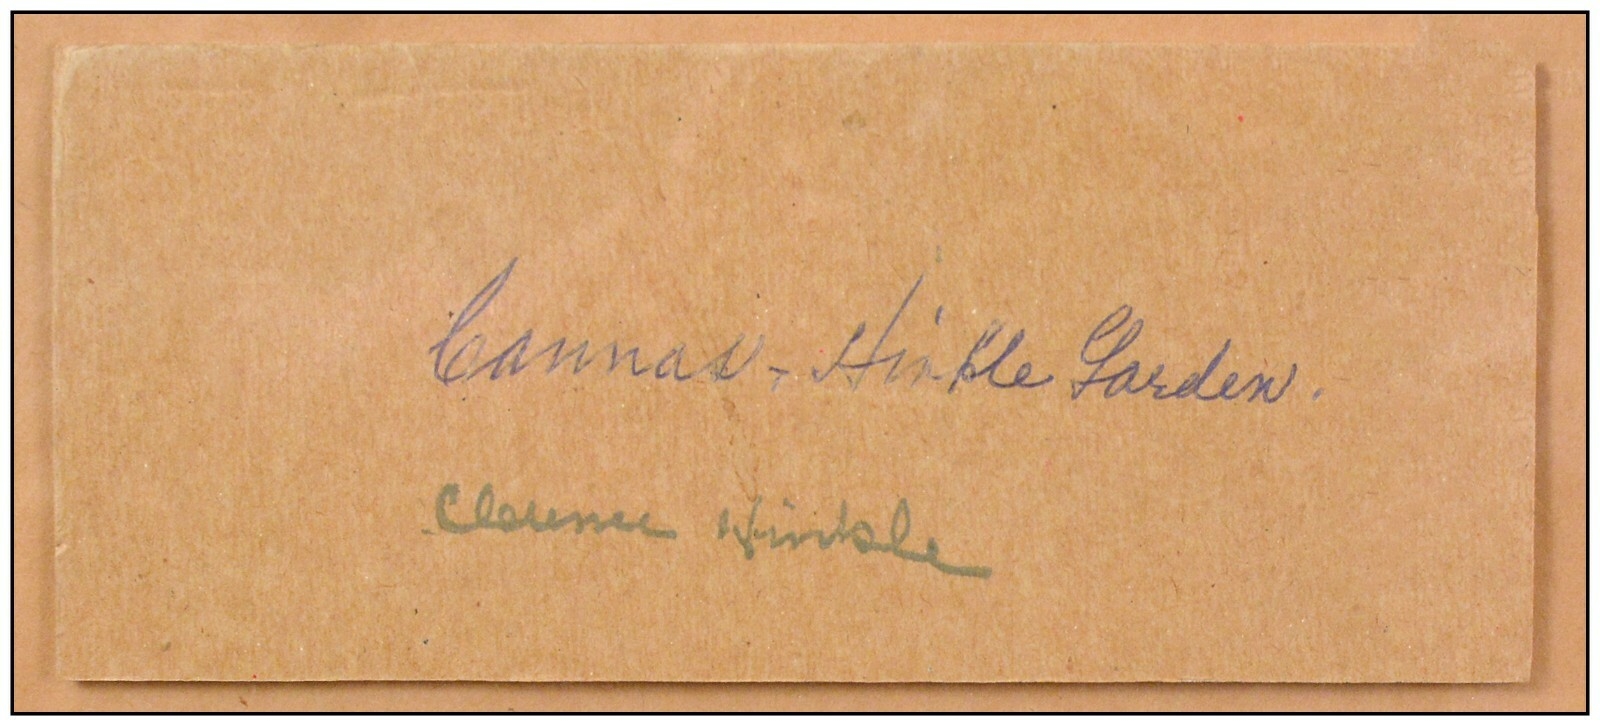 Cannas - Hinkle Garden.
Clarence Hinkle